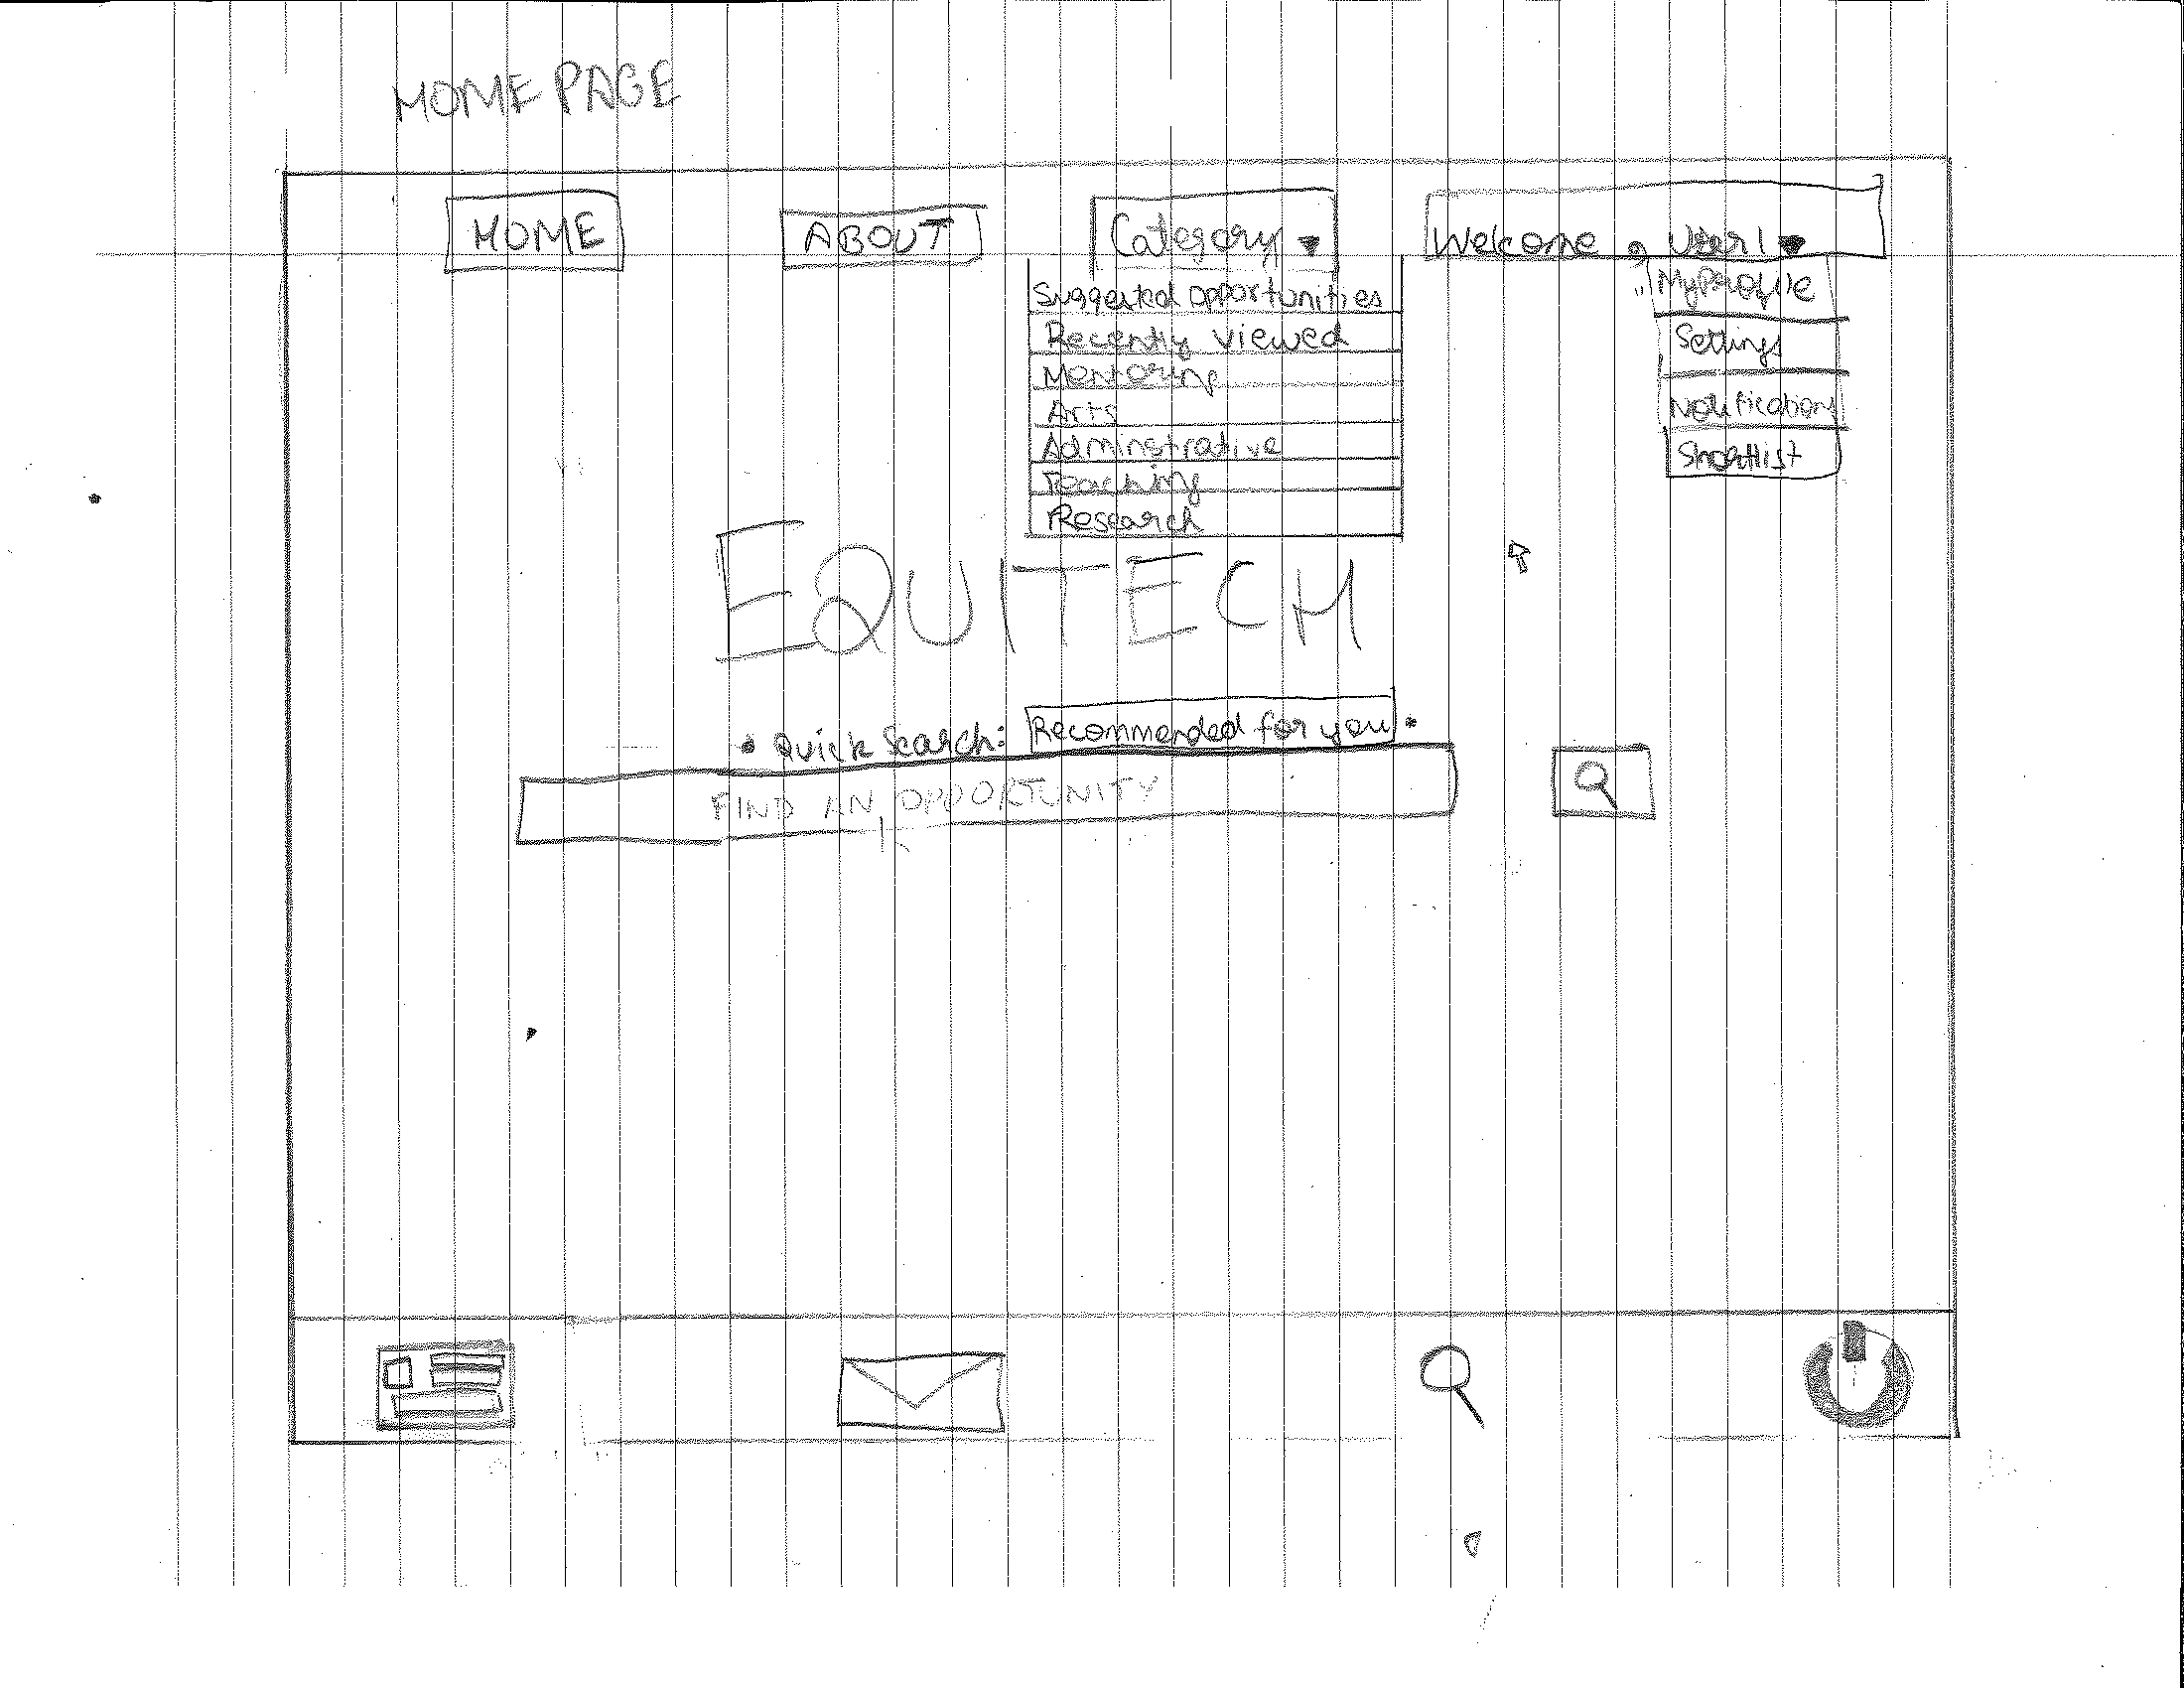 HOME PAGE
HOME ABOUT Category Welcome, User1
Suggested opportunities
Recently viewed
Mentoring
Arts
Adminstrative
Teaching
Research
My Profile
Settings
Notifications
Shortlist
EQUITECH
• Quick Search: Recommended for you •
FIND AN OPPORTUNITY